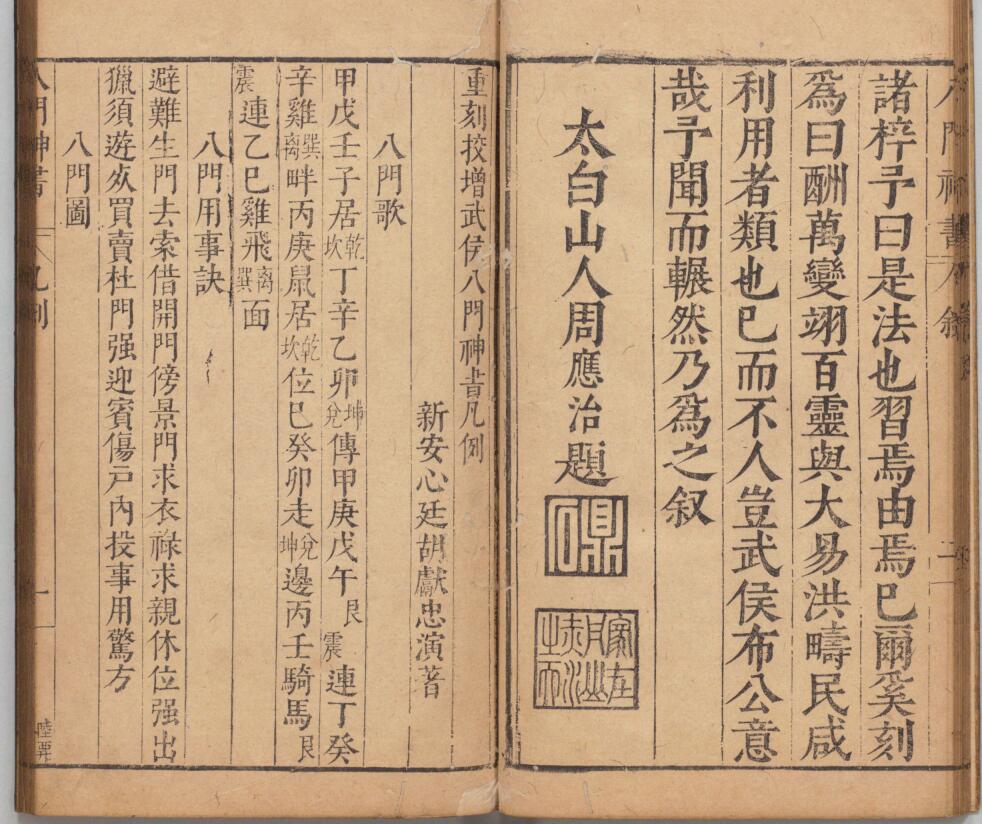 諸梓予曰是法也習焉由焉已爾奚刻
爲曰酬萬變翊百靈與大易洪疇民咸
利用者類也已而不人豈武侯布公意
哉予聞而輾然乃爲之叙
太白山人周應治題
重刻挍增武侯八門神書凡例
新安心廷胡獻忠演著
八門歌
甲戊壬子居乾坎丁辛乙卯坤兌傳甲庚戊午艮震連丁癸
辛雞巽離畔丙庚鼠居乾坎位巳癸卯走兌坤邊丙壬騎馬艮
震連乙巳雞飛离巽面
八門用事訣
避難生門去索借開門傍景門求衣祿求親休位强出
獵須遊㸔買賣杜門强迎賓傷戸內投事用驚方
八門圖
八門神書
凡例
一